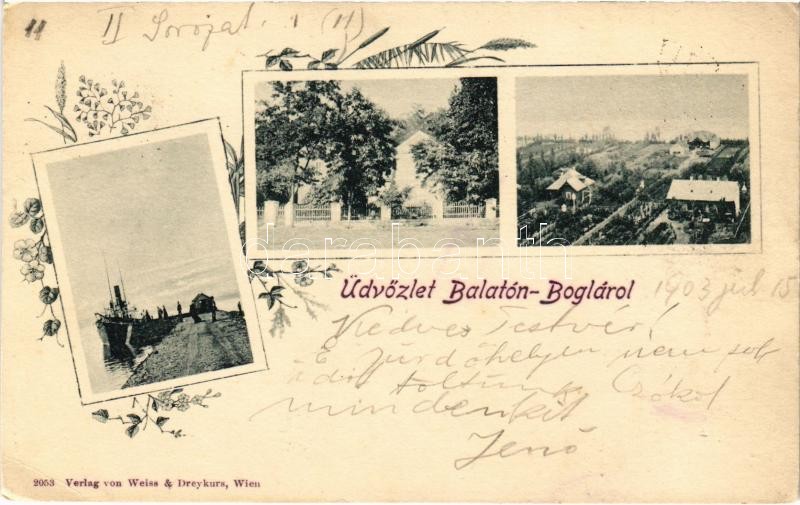 11 II Sorozat. 1 (11)
Üdvőzlet Balatón-Boglárol
1903 jul 15
Kedves Testvér!
E fürdőhelyen nem sok
időt töltünk Csókol
mindenkit
Jenő
2053 Verlag von Weiss & Dreykurs, Wien
darabanth